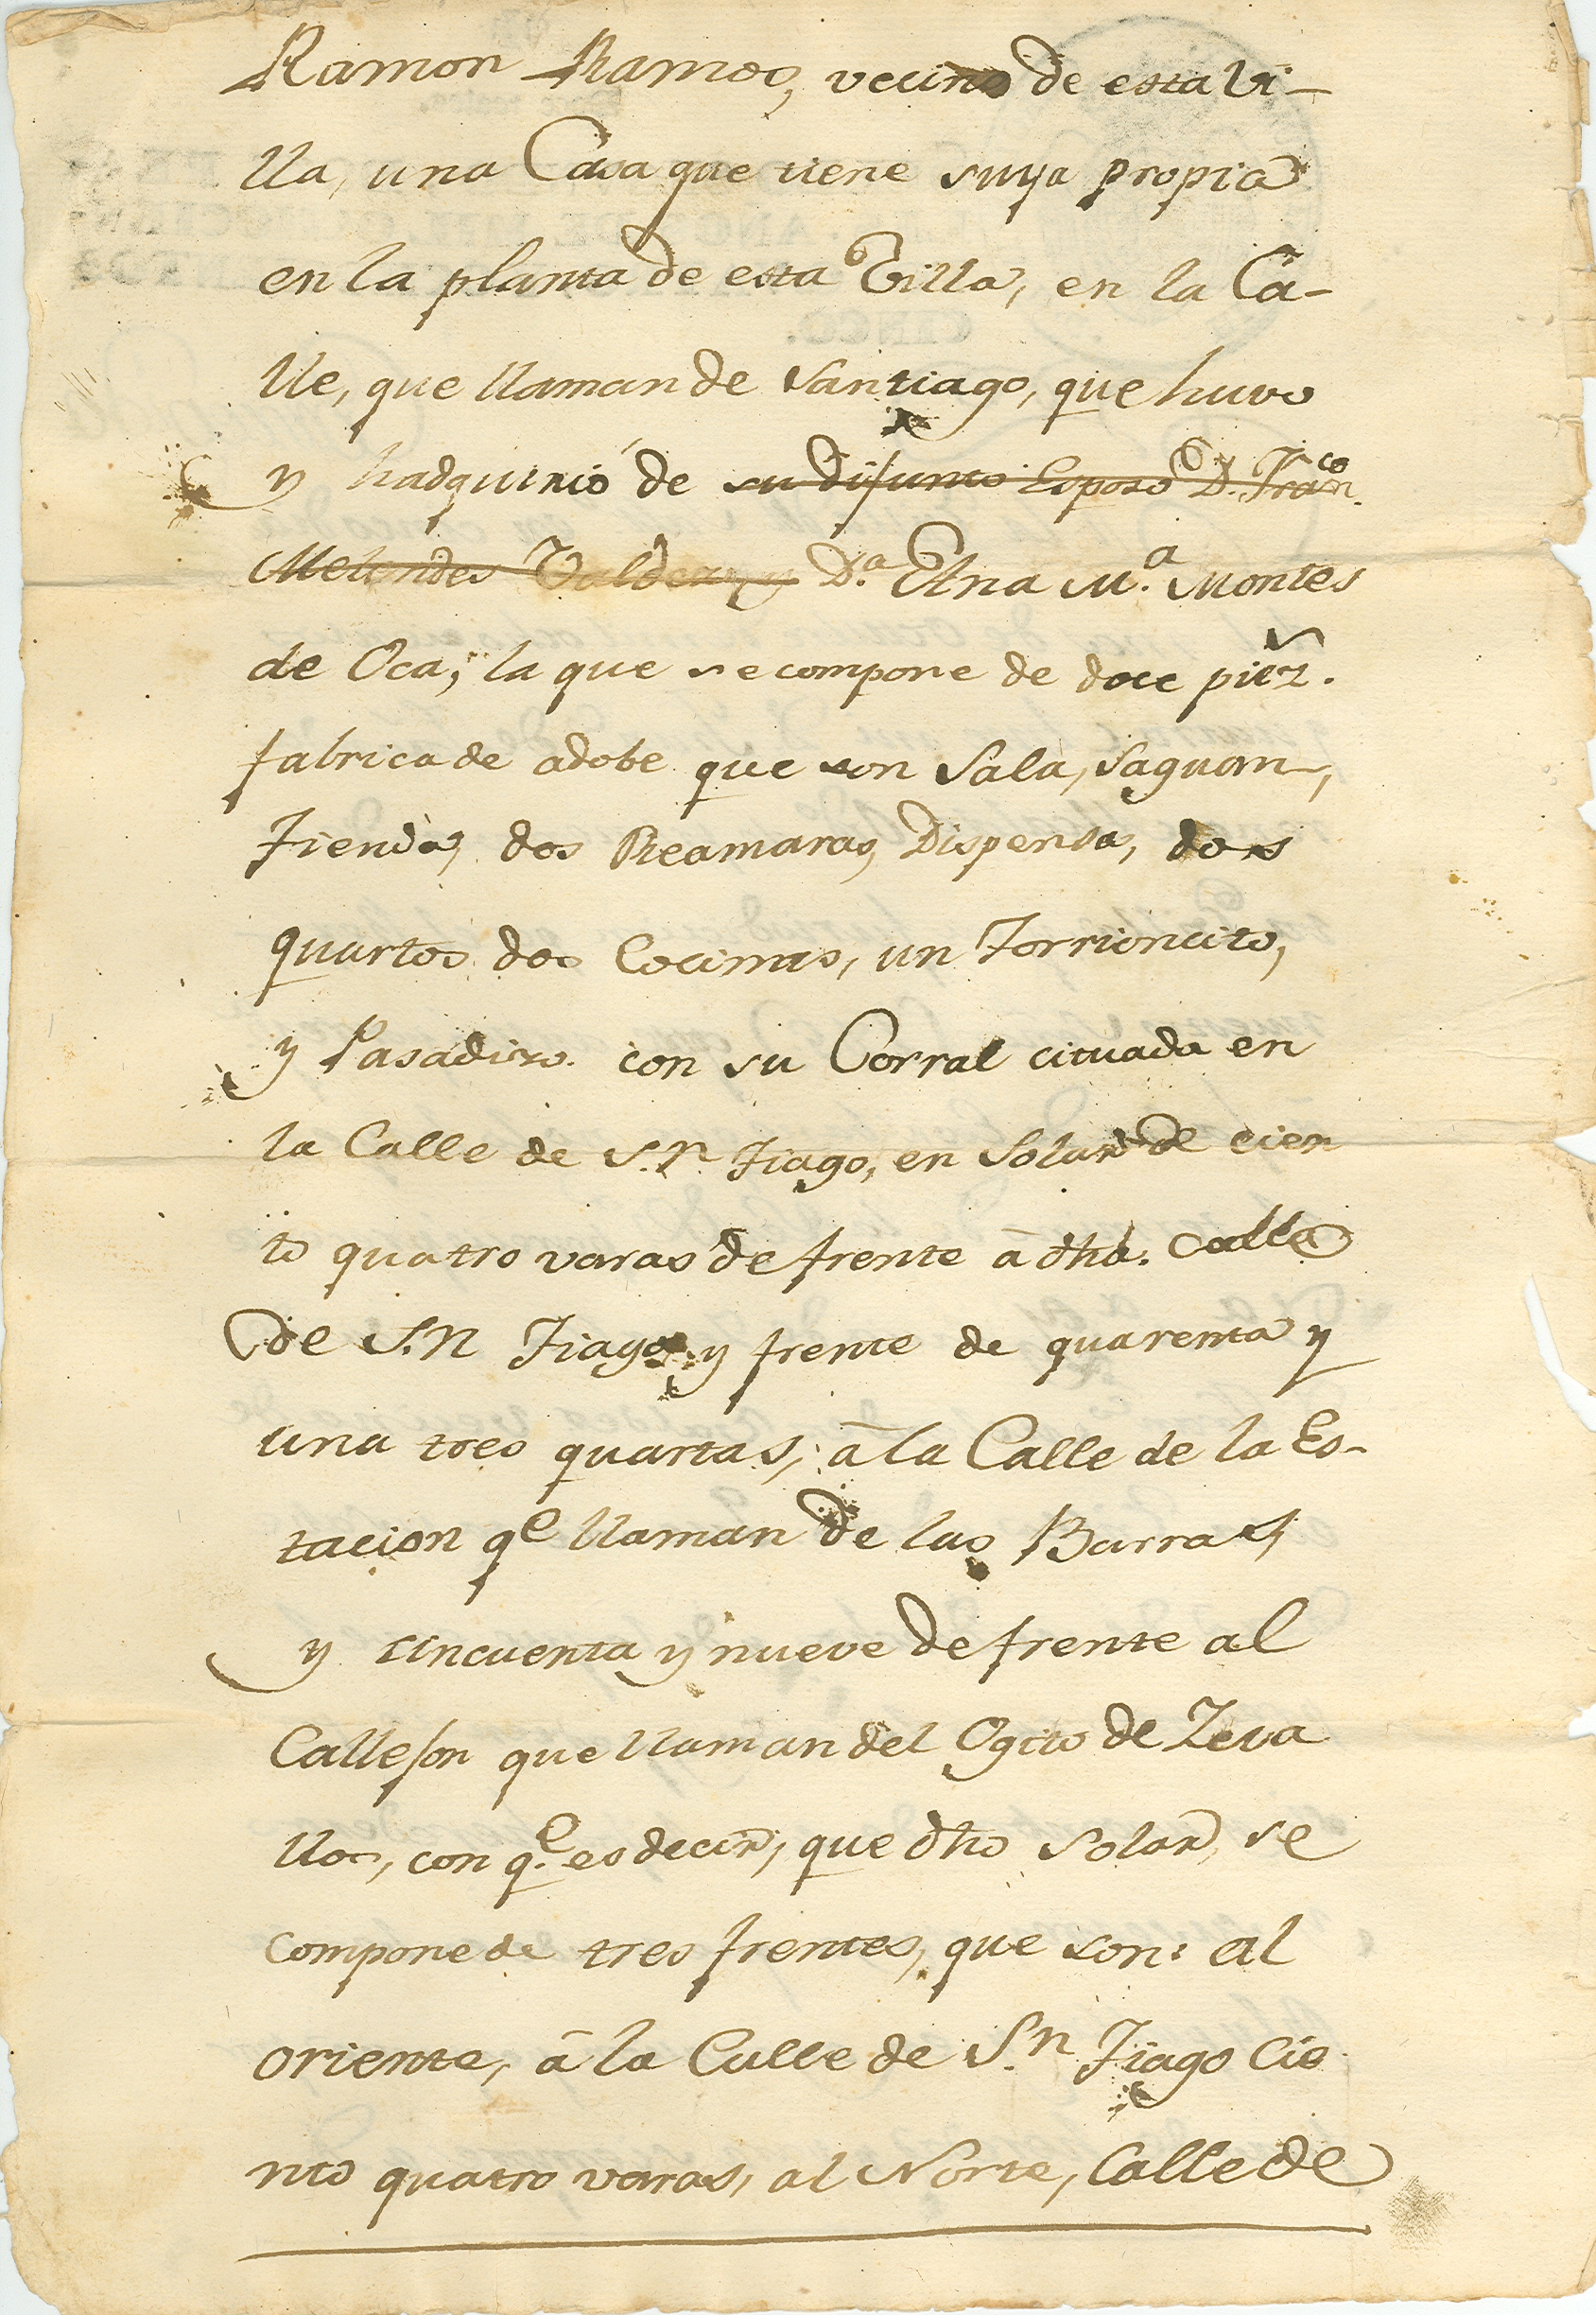 Ramon Ramos, vecino de esta Vi-
lla, una Casa que tiene suya propia
en la planta de esta Villa, en la Ca-
lle, que llaman de Santiago, que huvo
y hadquirió de su difunto Esposo D. Fran.co
Melendes Valdes, y D.a Elna M.a Montes
de Oca; la que se compone de doce piez.s
fabrica de adobe que son Sala, Saguan,
Tienda, dos Recamaras, Dispensa, dos
quartos dos Cocinas, un Torrioncito,
y Pasadizo. con su Corral cituada en
la Calle de S.n Tiago, en Solar de cien
to quatro varas de frente â dha. Calle
de S.n Tiago y frente de quarenta y
una tres quartas, â la Calle de la Es-
tacion q.e llaman de las Barras,
y cincuenta y nueve de frente al
Callejon que llaman del Ogito de Zeva
llos, con q.e es decir, que dho solar, se
compone de tres frentes, que son: al
oriente, â la Calle de S.n Tiago Cie
nto quatro varas, al Norte, Calle de